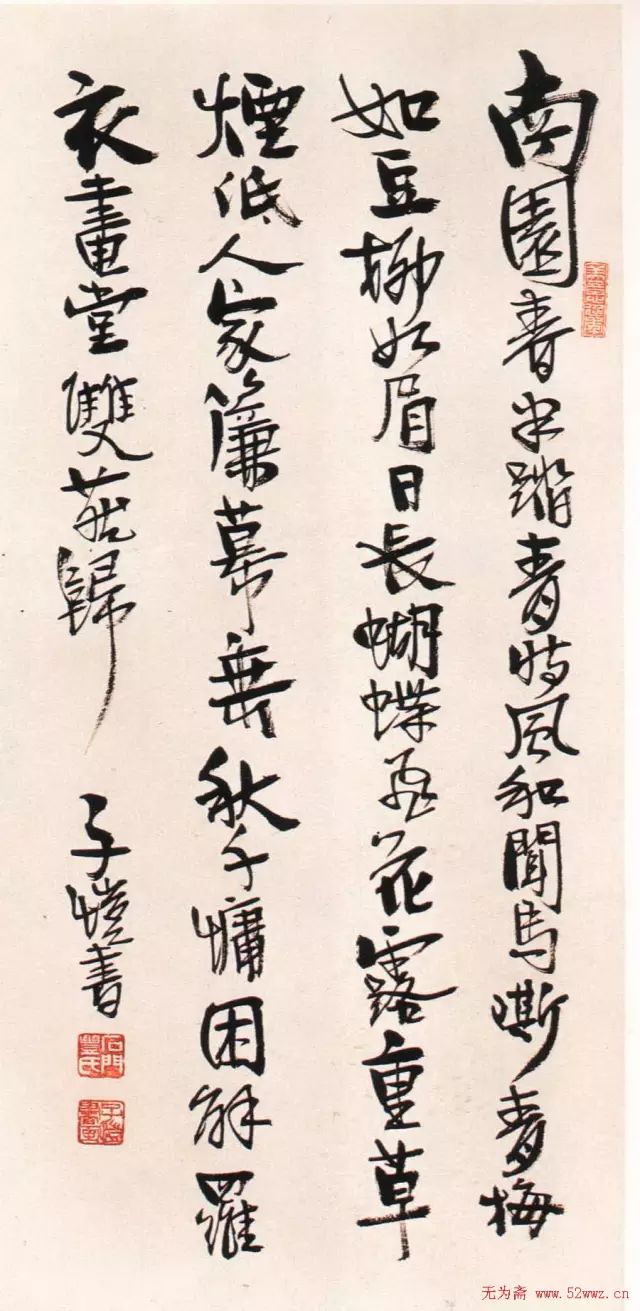 南園春半踏青時風和聞馬嘶青梅
如豆柳如眉日長蝴蝶飛花露重草
煙低人家簾幕垂秋千慵困解羅
衣畫堂雙燕歸
子愷書
石門豐氏
子愷書畫
无为斋 www.52wwz.cn